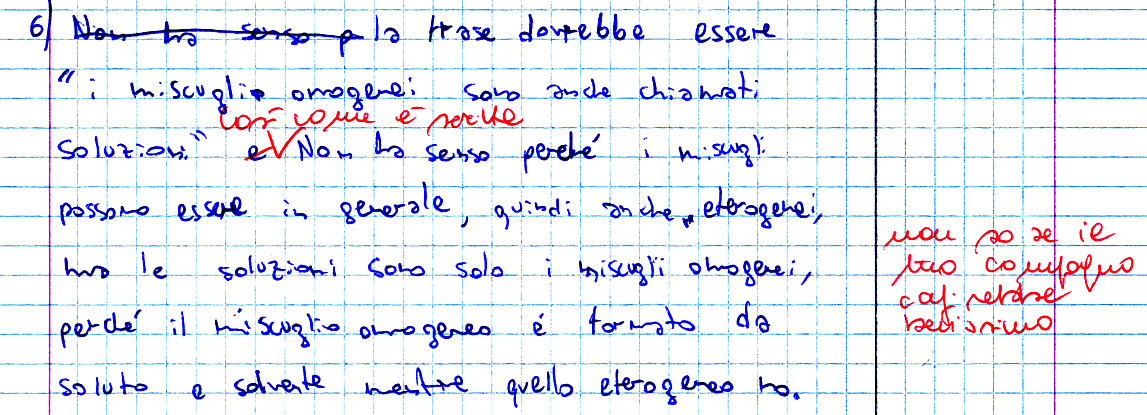 6) Non ha senso p la frase dovrebbe essere
"i miscuglio omogenei sono anche chiamati
così come è scritta
soluzioni" e Non ha senso perché i miscugli
possono essere in generale, quindi anche eterogenei,
ma le soluzioni sono solo i miscugli omogenei,
perché il miscuglio omogeneo é formato da
soluto e solvente mentre quello eterogeneo no.
non so se il
tuo compagno
capirebbe
benissimo